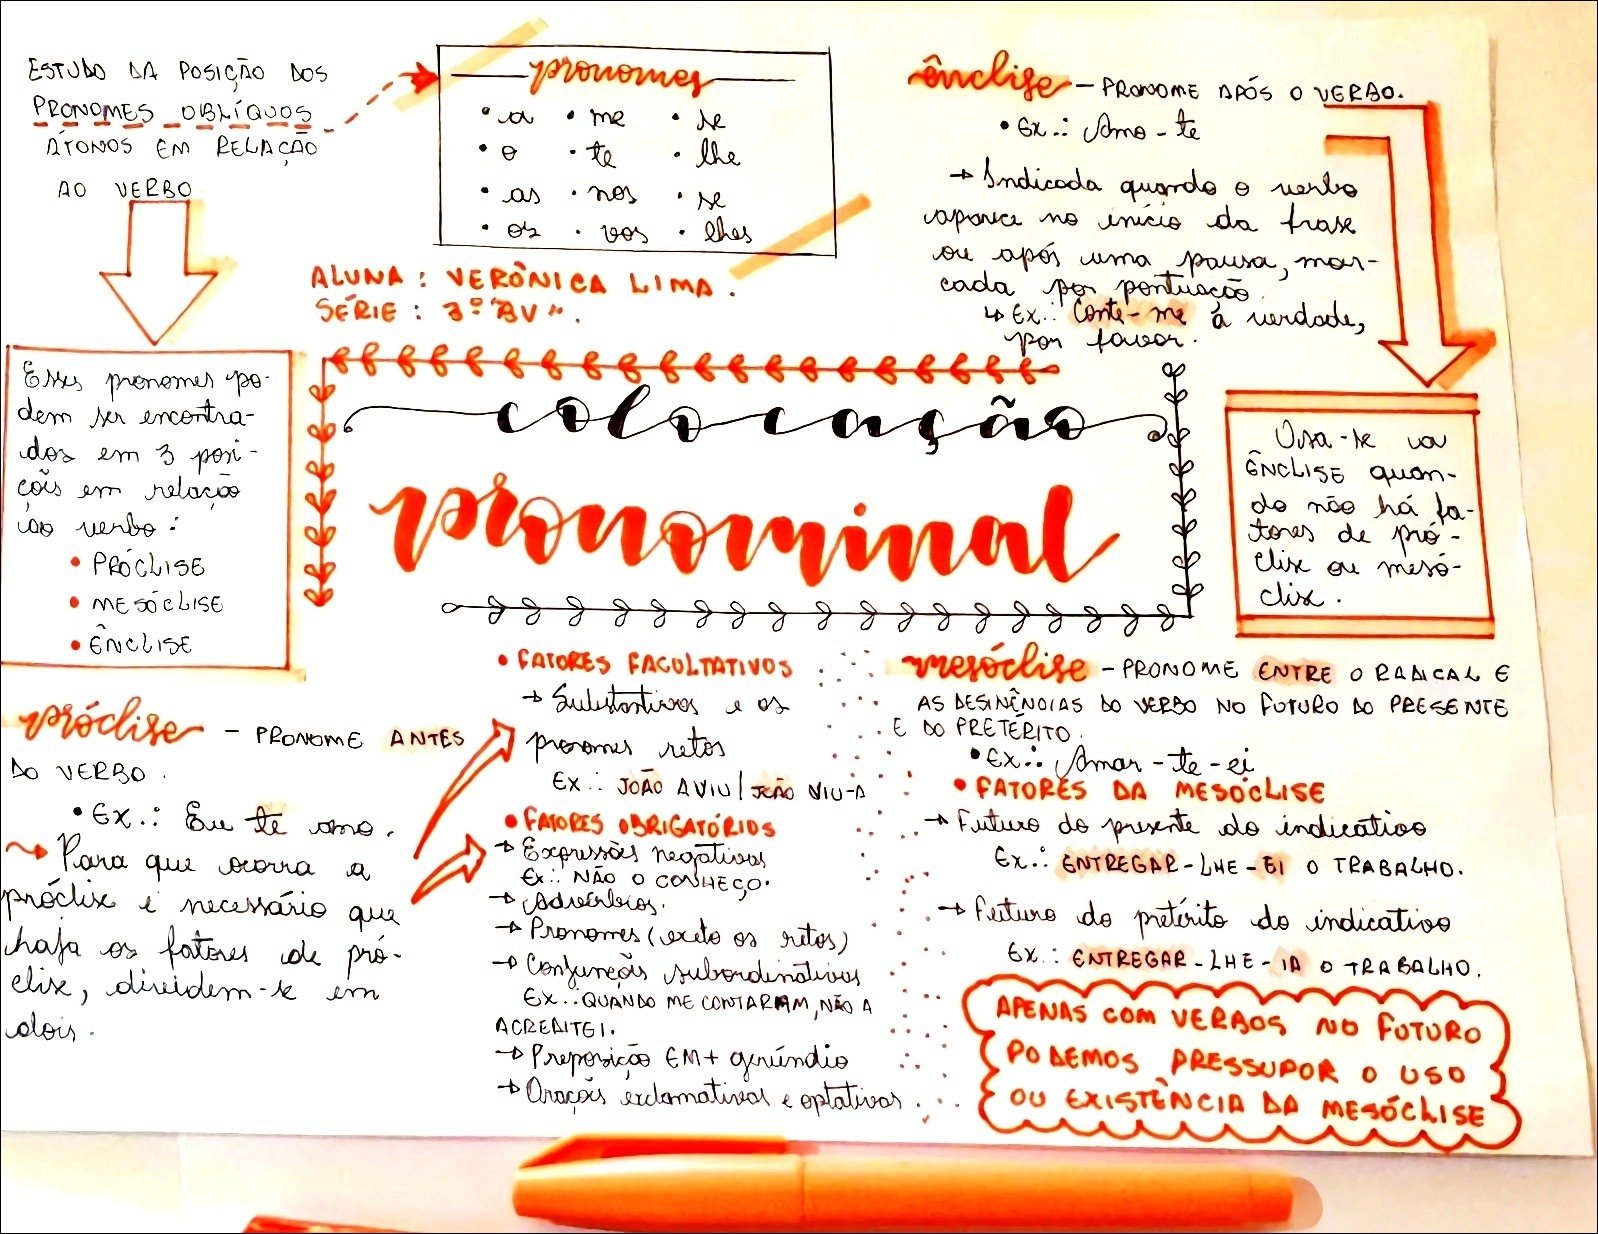 ESTUDO DA POSIÇÃO DOS
PRONOMES OBLÍQUOS
ÁTONOS EM RELAÇÃO
AO VERBO
pronomes
• a • me • se
• o • te • lhe
• as • nos • se
• os • vos • lhes
ALUNA : VERÔNICA LIMA .
SÉRIE : 3º "BV".
Esses pronomes po-
dem ser encontra-
dos em 3 posi-
ções em relação
ao verbo :
• PRÓCLISE
• MESÓCLISE
• ÊNCLISE
colocação
pronominal
ênclise - PRONOME APÓS O VERBO.
• Ex.: Amo-te
→ Indicada quando o verbo
aparece no início da frase
ou após uma pausa, mar-
cada por pontuação.
↳ Ex.: Conte-me a verdade,
por favor.
Usa-se a
ÊNCLISE quan-
do não há fa-
tores de pró-
clise ou mesó-
clise.
próclise - PRONOME ANTES
DO VERBO.
• Ex.: Eu te amo.
→ Para que ocorra a
próclise é necessário que
haja os fatores de pró-
clise, dividem-se em
dois.
• FATORES FACULTATIVOS
→ Substantivos e os
pronomes retos
Ex.: JOÃO A VIU / JOÃO VIU-A
• FATORES OBRIGATÓRIOS
→ Expressões negativas
Ex.: NÃO O CONHEÇO.
→ Advérbios.
→ Pronomes (exeto os retos)
→ Conjunções subordinativas
Ex.: QUANDO ME CONTARAM, NÃO A
ACREDITEI.
→ Preposição EM + gerúndio
→ Orações exclamativas e optativas.
mesóclise - PRONOME ENTRE O RADICAL E
AS DESINÊNCIAS DO VERBO NO FUTURO DO PRESENTE
E DO PRETÉRITO.
• Ex.: Amar-te-ei
• FATORES DA MESÓCLISE
→ Futuro do presente do indicativo
Ex.: ENTREGAR-LHE-EI O TRABALHO.
→ Futuro do pretérito do indicativo
Ex.: ENTREGAR-LHE-IA O TRABALHO.
APENAS COM VERBOS NO FUTURO
PODEMOS PRESSUPOR O USO
OU EXISTÊNCIA DA MESÓCLISE